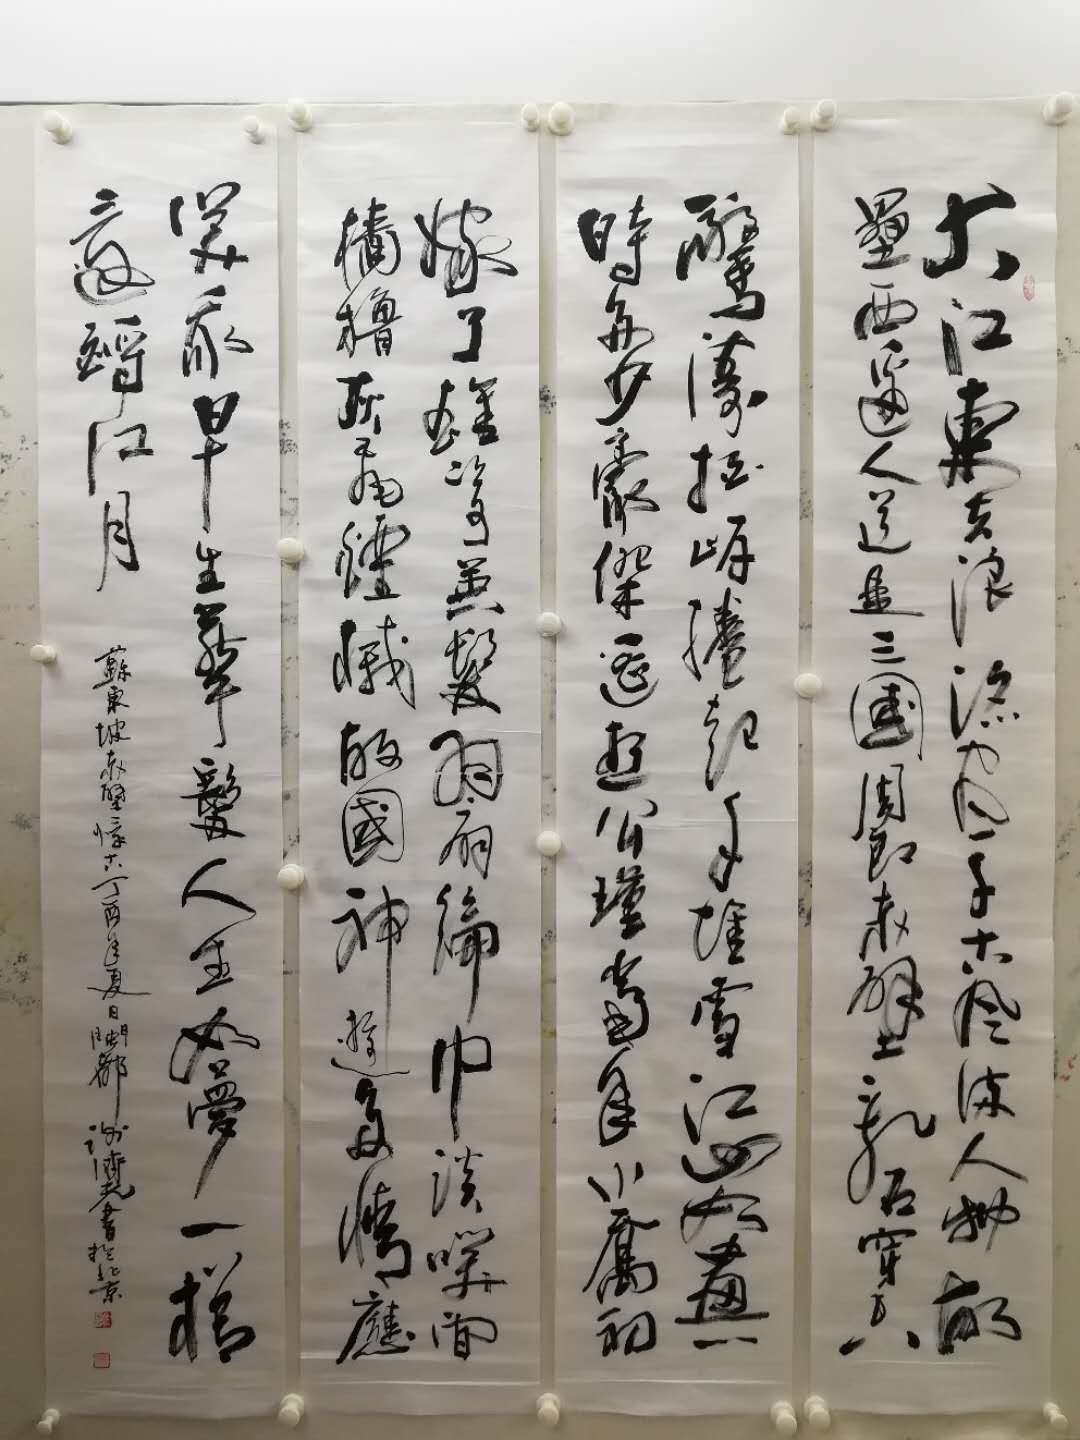 大江東去浪淘盡千古風流人物故
壘西邊人道是三國周郎赤壁亂石穿空
驚濤拍岸捲起千堆雪江山如畫一
時多少豪傑遙想公瑾當年小喬初
嫁了雄姿英發羽扇綸巾談笑間
檣櫓灰飛煙滅故國神遊多情應
笑我早生華髮人生如夢一樽
還酹江月
蘇東坡赤壁懷古丁酉年夏日閩都謝書於北京